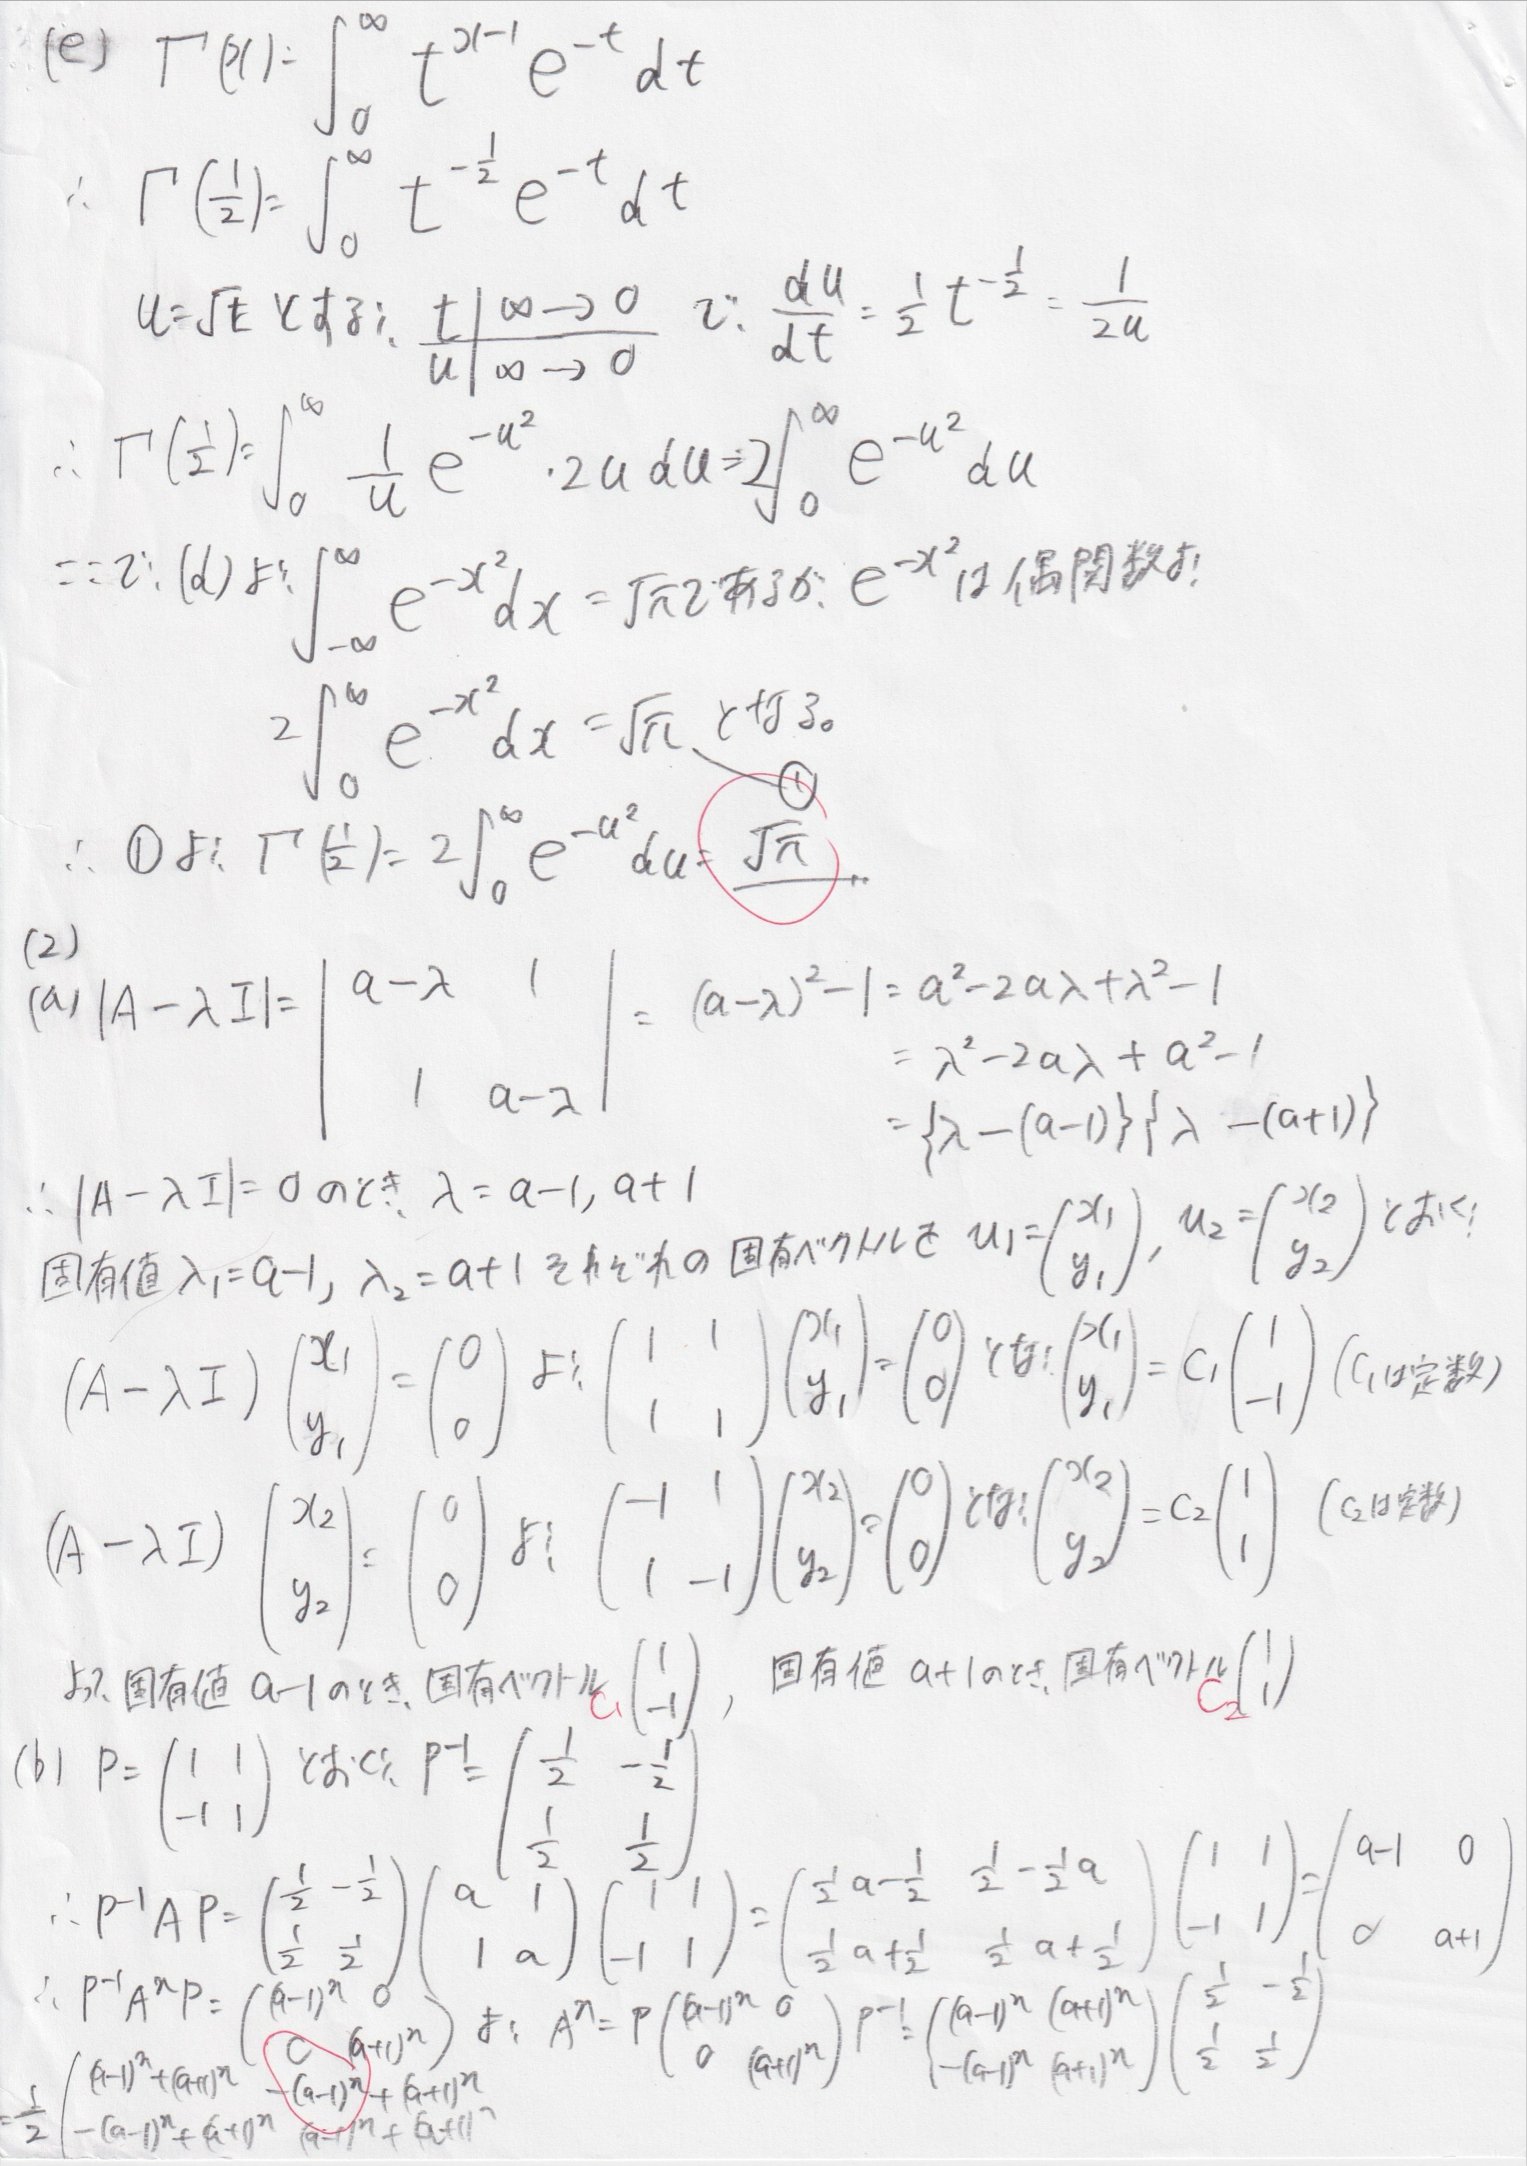 (e) Γ(x)=∫₀^∞ t^{x-1} e^{-t} dt
∴ Γ(1/2)=∫₀^∞ t^{-1/2} e^{-t} dt
u=√t とすると、 t | ∞→0 で、 du/dt = 1/2 t^{-1/2} = 1/2u
u | ∞→0
∴ Γ(1/2)=∫₀^∞ 1/u e^{-u²}・2u du=2∫₀^∞ e^{-u²} du
ここで、(d)より、∫_{-∞}^∞ e^{-x²}dx = √π であるが、e^{-x²}は偶関数より
2∫₀^∞ e^{-x²}dx = √π となる。
①
∴ ①より、Γ(1/2)= 2∫₀^∞ e^{-u²}du= √π
(2)
(a) |A-λI|= | a-λ 1 ; 1 a-λ | = (a-λ)²-1 = a²-2aλ+λ²-1
= λ²-2aλ+a²-1
={λ-(a-1)}{λ-(a+1)}
∴ |A-λI|=0のとき、λ=a-1, a+1
固有値 λ₁=a-1, λ₂=a+1 それぞれの固有ベクトルを u₁=(x₁ ; y₁), u₂=(x₂ ; y₂) とおくと、
(A-λI)(x₁ ; y₁)=(0 ; 0) より、(1 1 ; 1 1)(x₁ ; y₁)=(0 ; 0) となり、(x₁ ; y₁)=C₁(1 ; -1) (C₁は定数)
(A-λI)(x₂ ; y₂)=(0 ; 0) より、(-1 1 ; 1 -1)(x₂ ; y₂)=(0 ; 0) となり、(x₂ ; y₂)=C₂(1 ; 1) (C₂は定数)
よって、固有値 a-1のとき、固有ベクトル C₁(1 ; -1), 固有値 a+1のとき、固有ベクトル C₂(1 ; 1)
(b) P=(1 1 ; -1 1) とおくと、P⁻¹=(1/2 -1/2 ; 1/2 1/2)
∴ P⁻¹AP=(1/2 -1/2 ; 1/2 1/2)(a 1 ; 1 a)(1 1 ; -1 1)=(1/2a-1/2 1/2-1/2a ; 1/2a+1/2 1/2a+1/2)(1 1 ; -1 1)=(a-1 0 ; 0 a+1)
∴ P⁻¹AⁿP=((a-1)ⁿ 0 ; 0 (a+1)ⁿ) より、Aⁿ=P((a-1)ⁿ 0 ; 0 (a+1)ⁿ)P⁻¹=((a-1)ⁿ (a+1)ⁿ ; -(a-1)ⁿ (a+1)ⁿ)(1/2 -1/2 ; 1/2 1/2)
=1/2((a-1)ⁿ+(a+1)ⁿ -(a-1)ⁿ+(a+1)ⁿ ; -(a-1)ⁿ+(a+1)ⁿ (a-1)ⁿ+(a+1)ⁿ